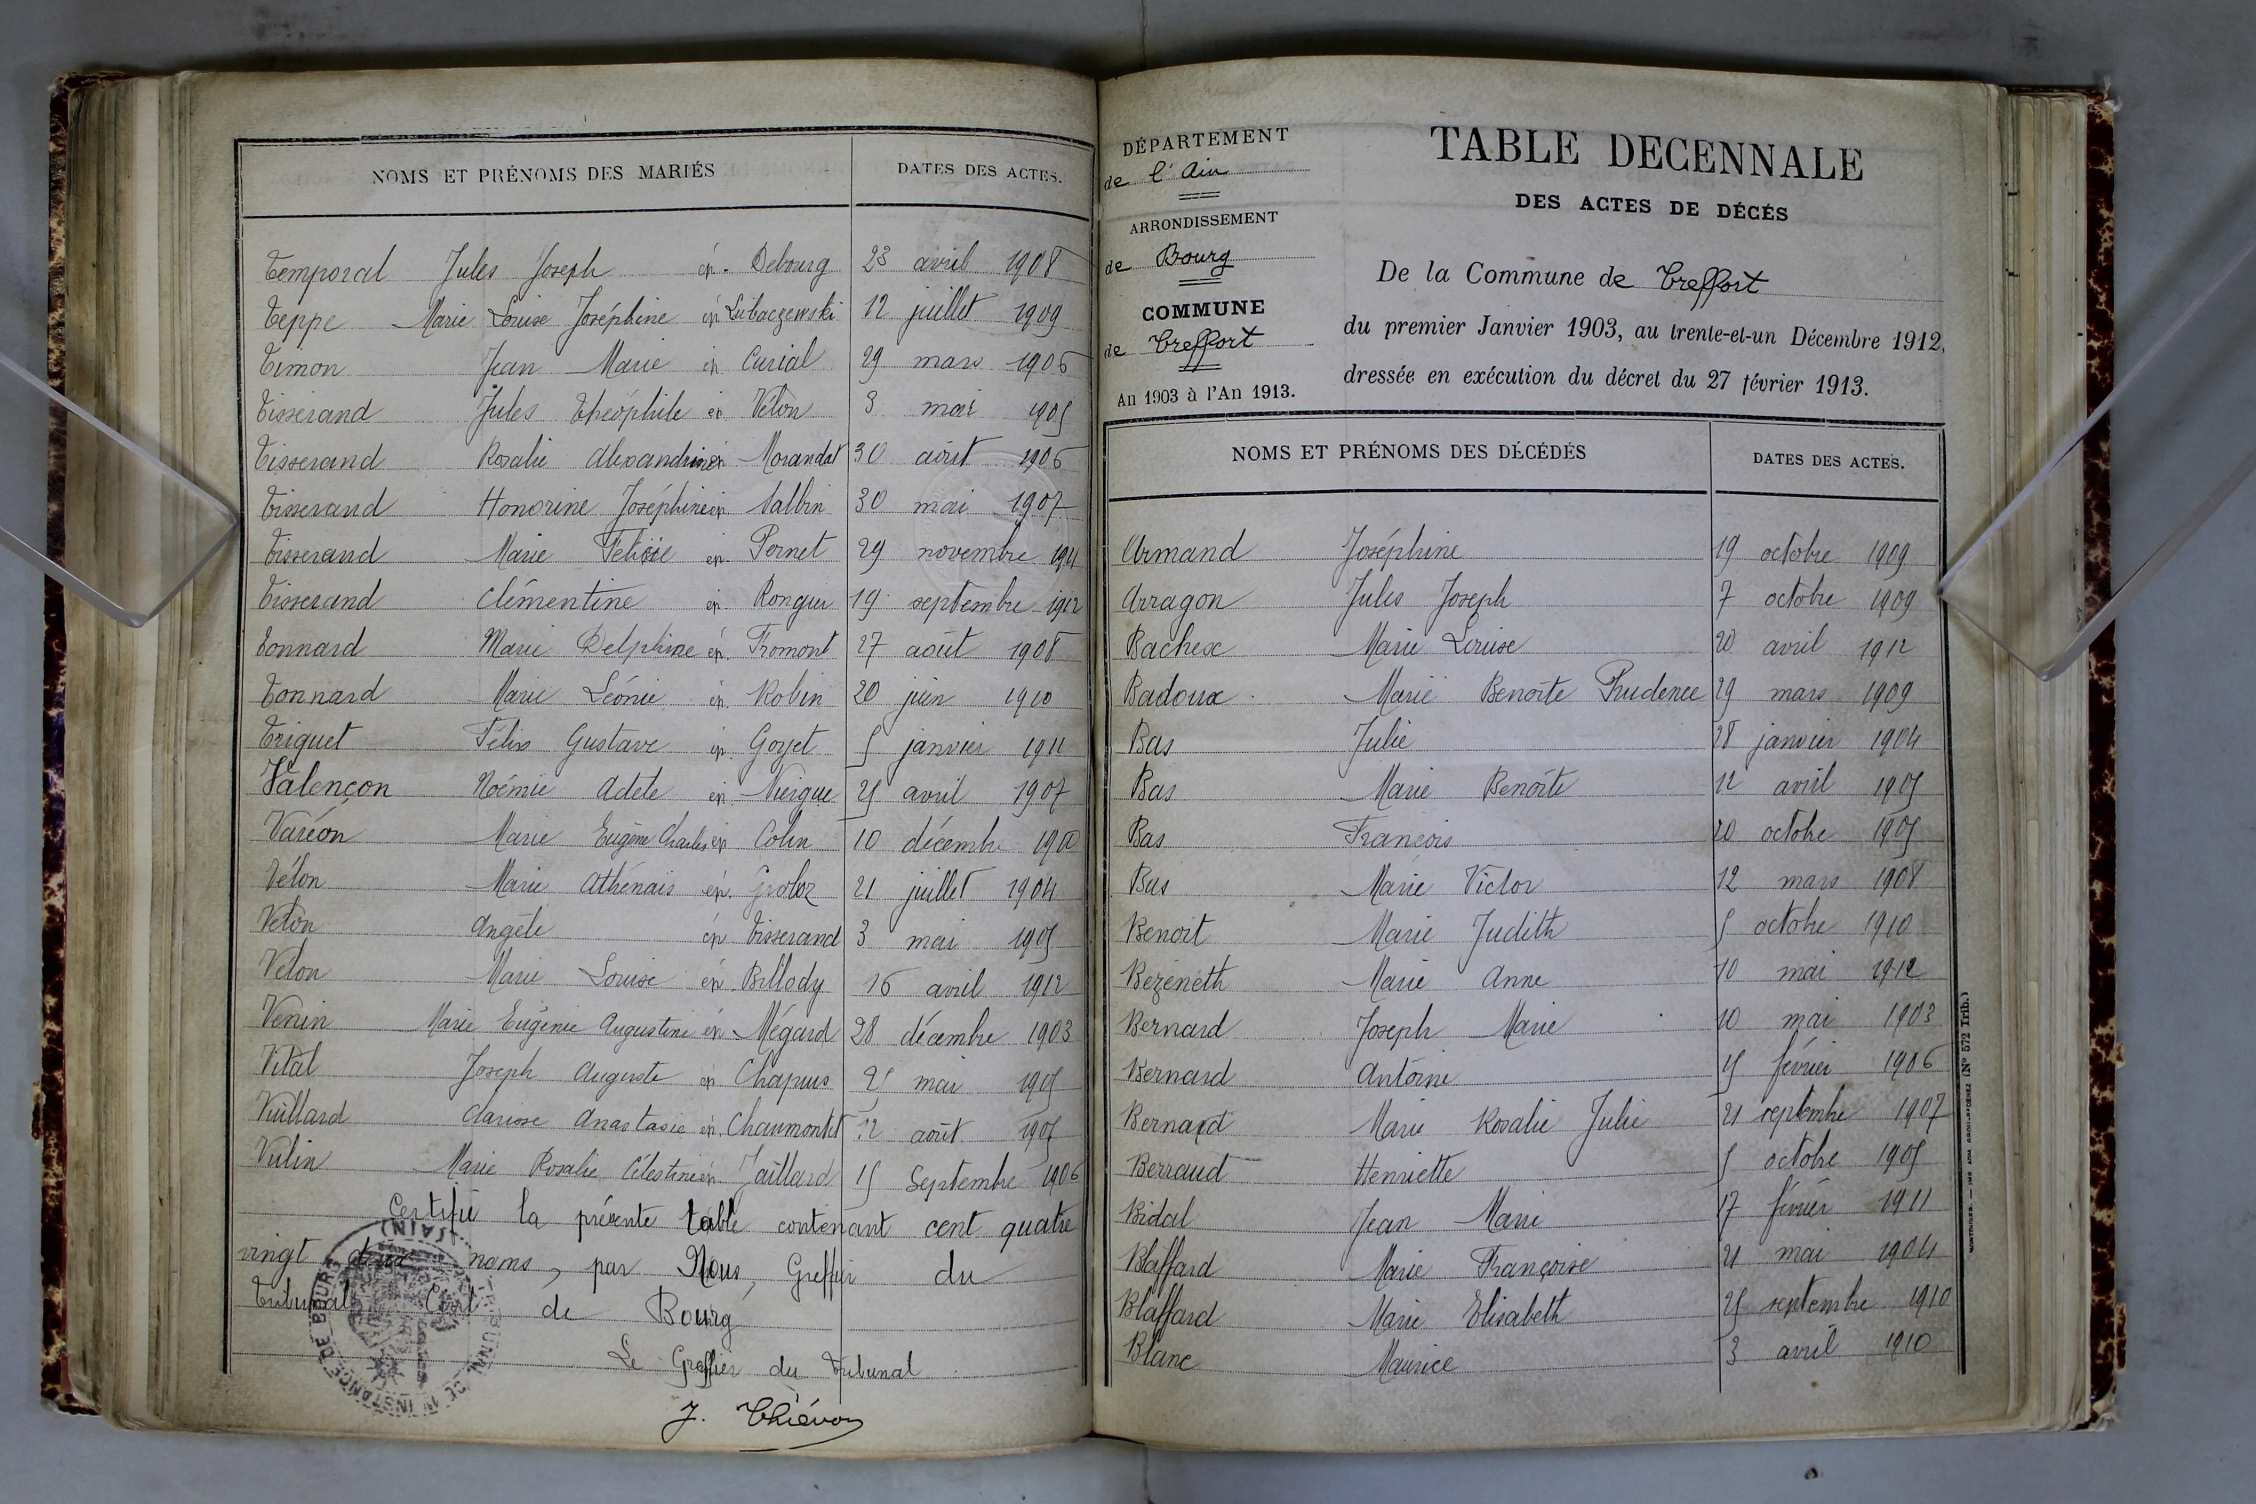 NOMS ET PRÉNOMS DES MARIÉS DATES DES ACTES.
Temporal Jules Joseph ép. Debourg 23 avril 1908
Teppe Marie Louise Joséphine ép Lubaczewski 12 juillet 1909
Timon Jean Marie ép. Curial 29 mars 1906
Tisserand Jules Théophile ép. Velon 3 mai 1905
Tisserand Rosalie Alexandrine ép. Morandat 30 août 1906
Tisserand Honorine Joséphine ép. Vallin 30 mai 1907
Tisserand Marie Félicie ép. Pernet 29 novembre 1911
Tisserand Clémentine ép. Ronguer 19 septembre 1912
Tonnard Marie Delphine ép. Fromont 27 août 1908
Tonnard Marie Léonie ép. Robin 20 juin 1910
Triquet Félix Gustave ép. Goyet 5 janvier 1911
Valençon Noémie Adèle ép. Niergue 25 avril 1907
Varéon Marie Eugène Charles ép Colin 10 décembre
Vélon Marie Athénais ép. Groboz 21 juillet 1904
Velon Angèle ép. Tisserand 3 mai 1905
Velon Marie Louise ép. Billody 16 avril 1912
Venin Marie Eugénie Augustine ép. Mégard 28 décembre 1903
Vital Joseph Auguste ép. Chapuis 25 mai 1905
Vuillard Clarisse Anastasie ép. Chaumontet 12 août 1905
Vulin Marie Rosalie Célestine ép. Jaillard 15 Septembre 1906
Certifié la présente table contenant cent quatre
vingt deux noms, par Nous, Greffier du
Tribunal Civil de Bourg
Le Greffier du Tribunal
J. Thiévon
TRIBUNAL DE 1re INSTANCE DE BOURG (AIN)
DÉPARTEMENT
de l'Ain
ARRONDISSEMENT
de Bourg
COMMUNE
de Treffort
An 1903 à l'An 1913.
TABLE DECENNALE
DES ACTES DE DÉCÉS
De la Commune de Treffort
du premier Janvier 1903, au trente-et-un Décembre 1912,
dressée en exécution du décret du 27 février 1913.
NOMS ET PRÉNOMS DES DÉCÉDÉS DATES DES ACTES.
Armand Joséphine 19 octobre 1909
Arragon Jules Joseph 7 octobre 1909
Bachex Marie Louise 20 avril 1912
Badoux Marie Benoîte Prudence 29 mars 1909
Bas Julie 28 janvier 1904
Bas Marie Benoîte 12 avril 1905
Bas François 20 octobre 1905
Bas Marie Victor 12 mars 1908
Benoit Marie Judith 5 octobre 1910
Bezeneth Marie Anne 10 mai 1912
Bernard Joseph Marie 10 mai 1903
Bernard Antoine 15 février 1906
Bernard Marie Rosalie Julie 21 septembre 1907
Berraud Henriette 5 octobre 1905
Bidal Jean Marie 17 février 1911
Blaffard Marie Françoise 21 mai 1904
Blaffard Marie Elisabeth 25 septembre 1910
Blanc Maurice 3 avril 1910
(No 572 Trib.)